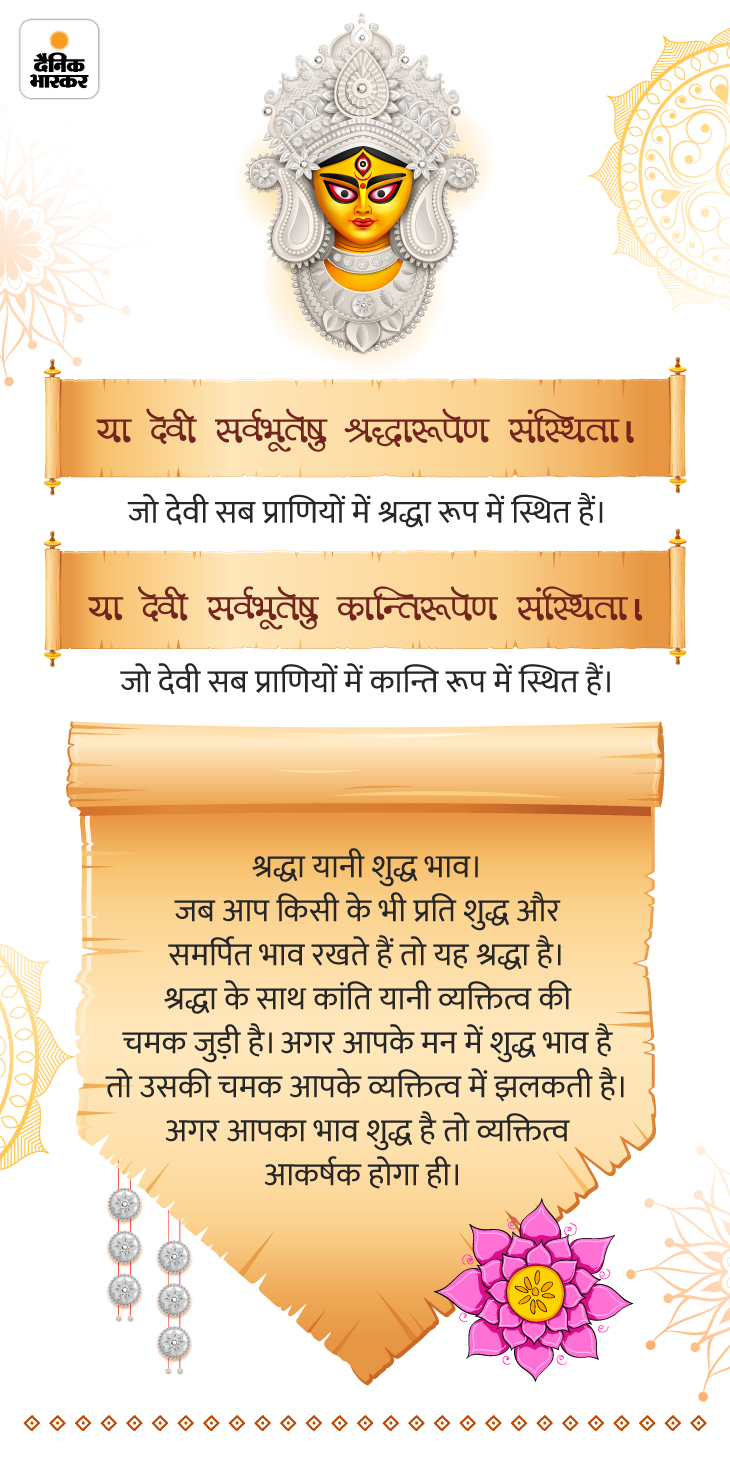 दैनिक
भास्कर
या देवी सर्वभूतेषु श्रद्धारूपेण संस्थिता।
जो देवी सब प्राणियों में श्रद्धा रूप में स्थित हैं।
या देवी सर्वभूतेषु कान्तिरूपेण संस्थिता।
जो देवी सब प्राणियों में कान्ति रूप में स्थित हैं।
श्रद्धा यानी शुद्ध भाव।
जब आप किसी के भी प्रति शुद्ध और
समर्पित भाव रखते हैं तो यह श्रद्धा है।
श्रद्धा के साथ कांति यानी व्यक्तित्व की
चमक जुड़ी है। अगर आपके मन में शुद्ध भाव है
तो उसकी चमक आपके व्यक्तित्व में झलकती है।
अगर आपका भाव शुद्ध है तो व्यक्तित्व
आकर्षक होगा ही।